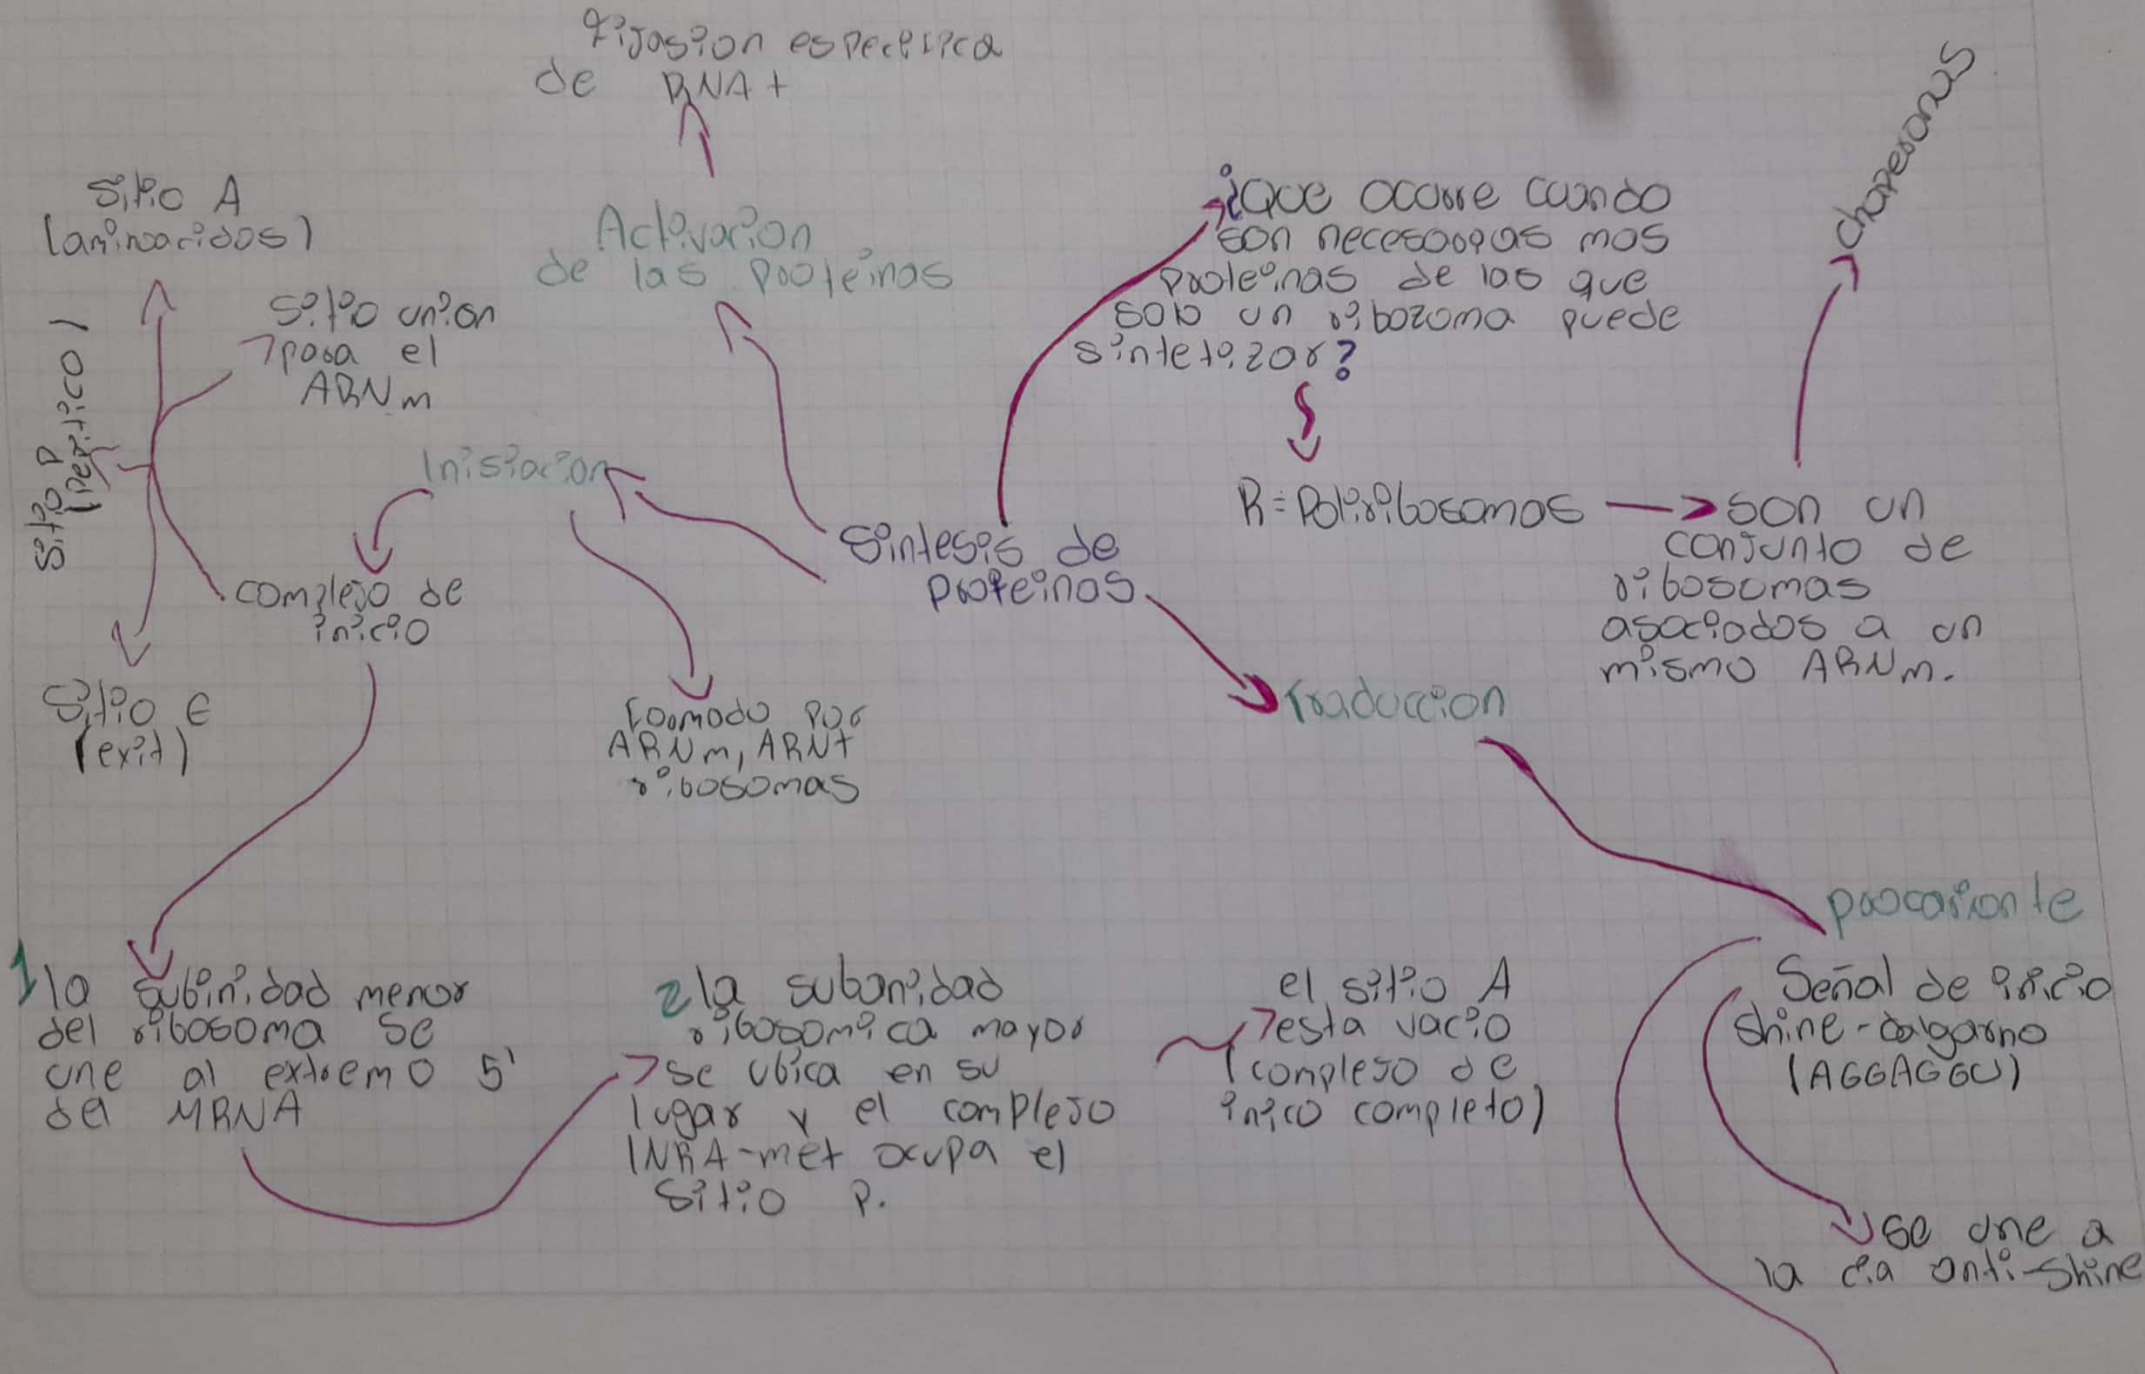 Fijasion especifica
de RNAt
Activacion
de las proteinas
Sitio A
(aminoacidos)
Sitio union
para el
ARNm
Sitio P
(peptitico)
Inisiacion
complejo de
inicio
Sitio E
(exit)
formado por
ARNm, ARNt
ribosomas
Sintesis de
proteinas
¿Que ocurre cuando
son necesarias mas
proteinas de las que
solo un ribozoma puede
sintetizar?
R= Poliribosomas
son un
conjunto de
ribosomas
asociados a un
mismo ARNm.
chaperonas
Traduccion
procarionte
Señal de inicio
shine-dalgarno
(AGGAGGU)
se une a
la anti-shine
1 la subinidad menor
del ribosoma se
une al extremo 5'
del MRNA
2 la subunidad
ribosomica mayor
se ubica en su
lugar y el complejo
-met ocupa el
sitio P.
el sitio A
esta vacio
(complejo de
inico completo)